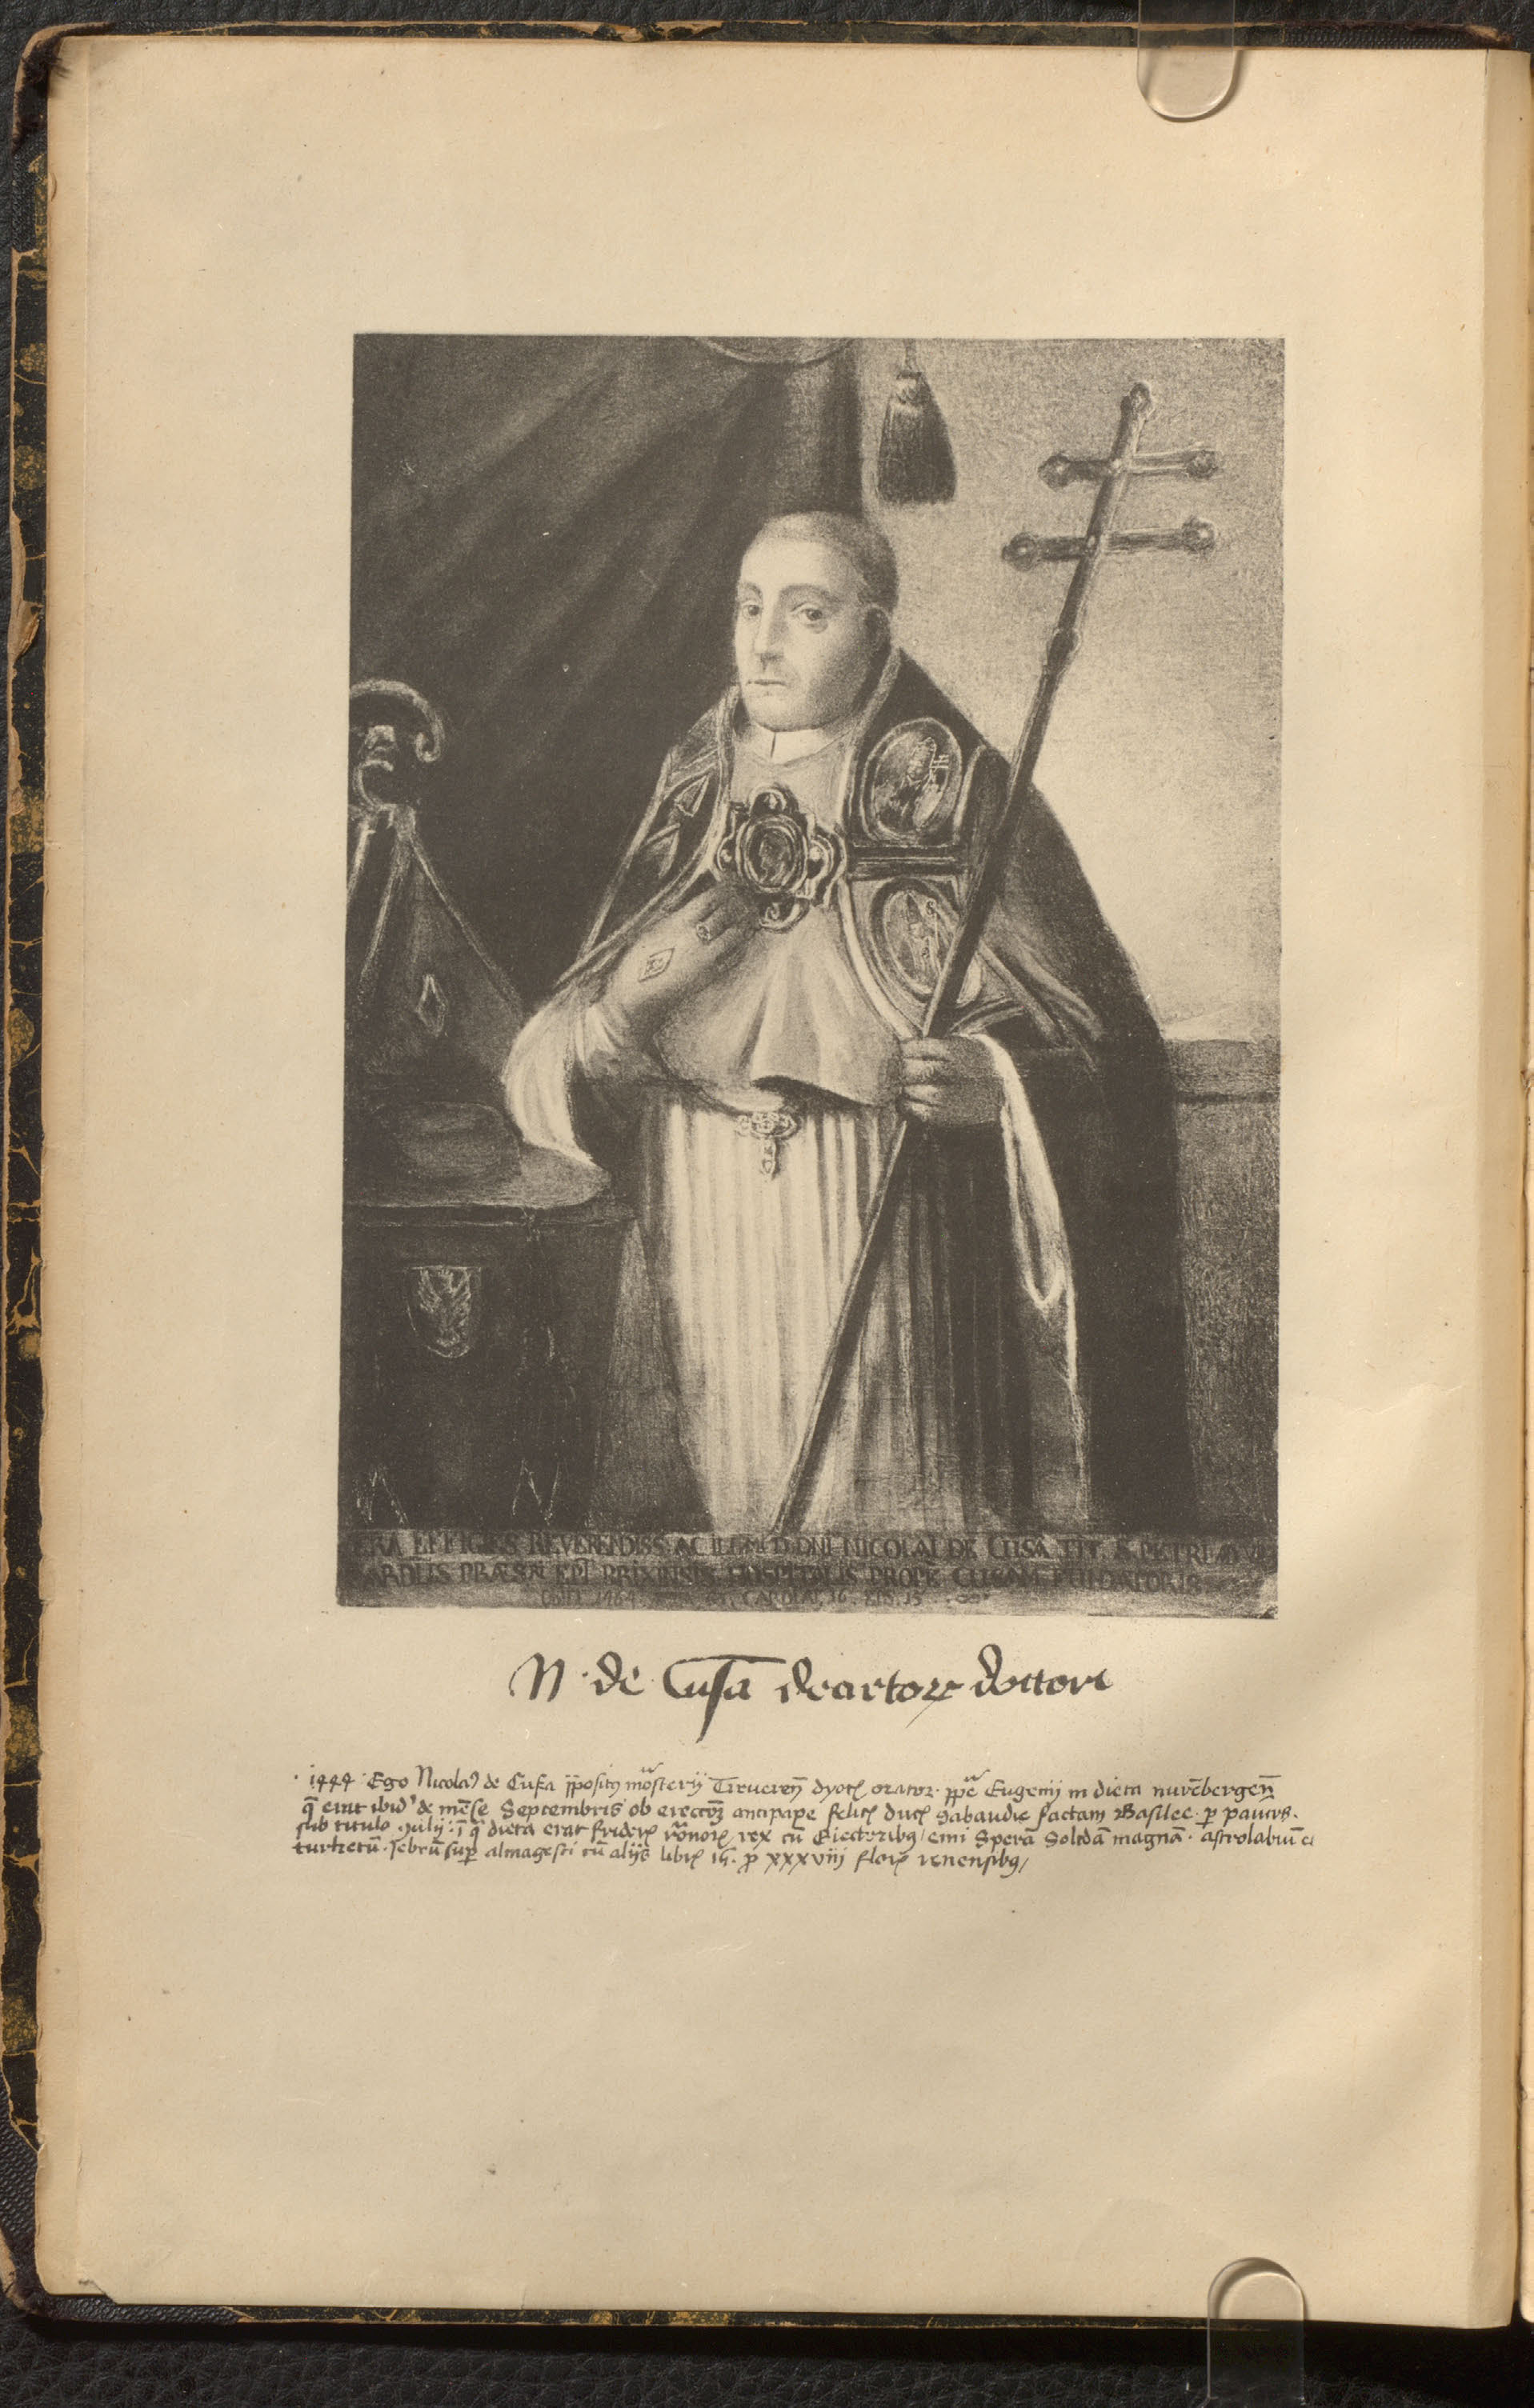 ERA EFFIGIES REVERENDISS: AC ILLMI D. DNI NICOLAI DE CUSA TIT. S. PETRI AD
ARDLIS PRÆSŪL EPI BRIXINSIS HOSPITALIS PROPE CUSAM FUNDATORIS
OBIIT 1464
N · de Cusa decretorꝝ doctore
· 1444 · Ego Nicolaꝰ de Cusa ꝓpositꝰ mōsterij Treuereñ dyoc̄ orator ꝓpe Eugenij in dieta nurēbergeñ
q̄ erat ibidꝰ de mēse Septembris ob erectōȝ antipape felic̄ duc̄ Sabaudie factam Basilee · ꝑ paucos ·
sub titulo · ꝯsilij : ī q̄ dieta erat frideric̄ rōnoꝝ rex cū Electoribꝫ / emi Sperā Solidā magnā · astrolabiū et
turketū · Jebrū suꝑ almagesti cū alijs libris 15 · ꝓ xxxviij floreñ renensibꝫ /